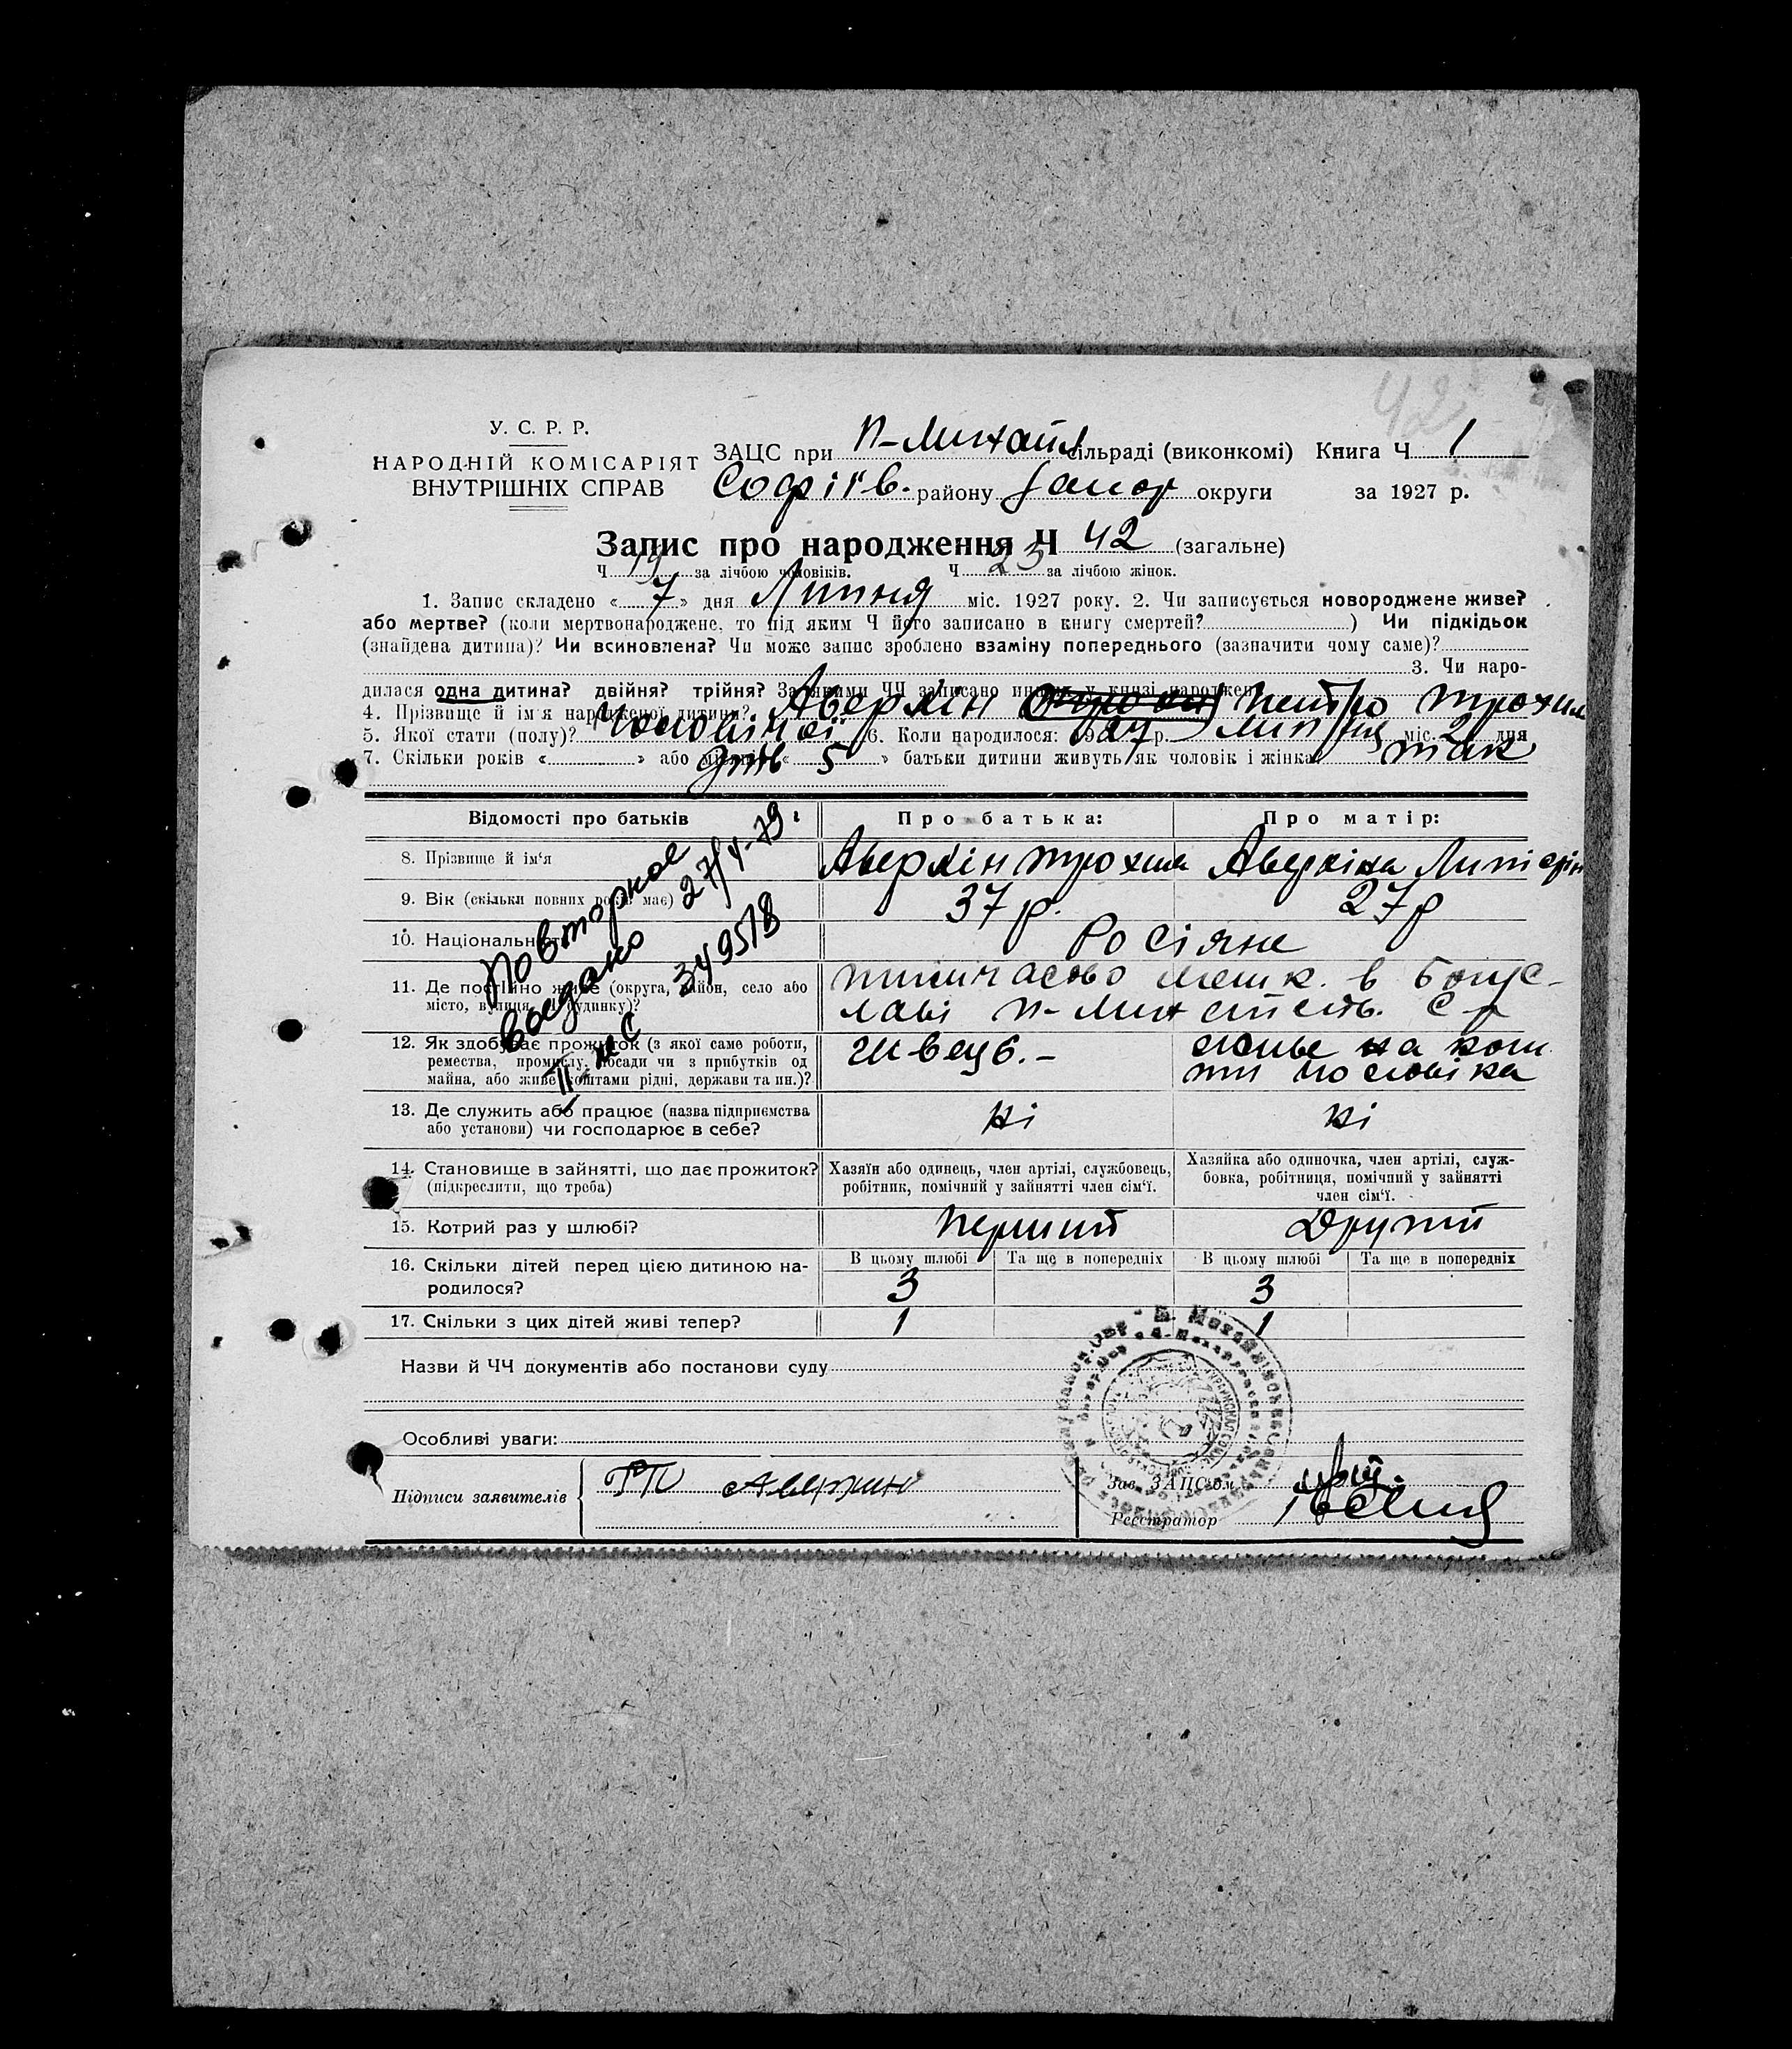 42
У. С. Р. Р.
НАРОДНІЙ КОМІСАРІЯТ
ВНУТРІШНІХ СПРАВ
ЗАЦС при П-Михайл сільраді (виконкомі) Книга Ч 1
Софіїв. району Запор округи за 1927 р.
Запис про народження Ч 42 (загальне)
Ч 19 за лічбою чоловіків. Ч 23 за лічбою жінок.
1. Запис складено « 7 » дня Липня міс. 1927 року. 2. Чи записується новороджене живе?
або мертве? (коли мертвонароджене, то під яким Ч його записано в книгу смертей? ) Чи підкідьок
(знайдена дитина)? Чи всиновлена? Чи може запис зроблено взаміну попереднього (зазначити чому саме)?
3. Чи наро-
дилася одна дитина? двійня? трійня? За якими ЧЧ записано инших у книзі народжен
4. Прізвище й ім'я народженої дитини? Аверкін Петро Трохим
5. Якої стати (полу)? Чоловічої 6. Коли народилося: 1927 р. Липня міс. 2 дня
7. Скільки років « » або місяців « 5 » батьки дитини живуть як чоловік і жінка так
Відомості про батьків Про батька: Про матір:
8. Прізвище й ім'я Аверкін Трохим Аверкіна
9. Вік (скільки повних років має) 37 р. 27 р
10. Національність Росіяне
11. Де постійно живе (округа, район, село або
місто, вулиця, Ч будинку)?
тимчасово мешк. в Богус-
лаві
12. Як здобуває прожиток (з якої саме роботи,
ремества, промислу, посади чи з прибутків од
майна, або живе коштами рідні, держави та ин.)?
швець.-
живе на кош
ти чоловіка
13. Де служить або працює (назва підприємства
або установи) чи господарює в себе?
ні ні
14. Становище в зайнятті, що дає прожиток?
(підкреслити, що треба)
Хазяїн або одинець, член артілі, службовець,
робітник, помічний у зайнятті член сім'ї.
Хазяйка або одиночка, член артілі, служ-
бовка, робітниця, помічний у зайнятті
член сім'ї.
15. Котрий раз у шлюбі? Перший Другий
16. Скільки дітей перед цією дитиною на-
родилося?
В цьому шлюбі Та ще в попередніх В цьому шлюбі Та ще в попередніх
3 3
17. Скільки з цих дітей живі тепер? 1 1
Повторное
выдано 27/V-79г
II 349518
Назви й ЧЧ документів або постанови суду
Особливі уваги:
Підписи заявителів Аверкин
Зав. ЗАЦС'ом
Реєстратор